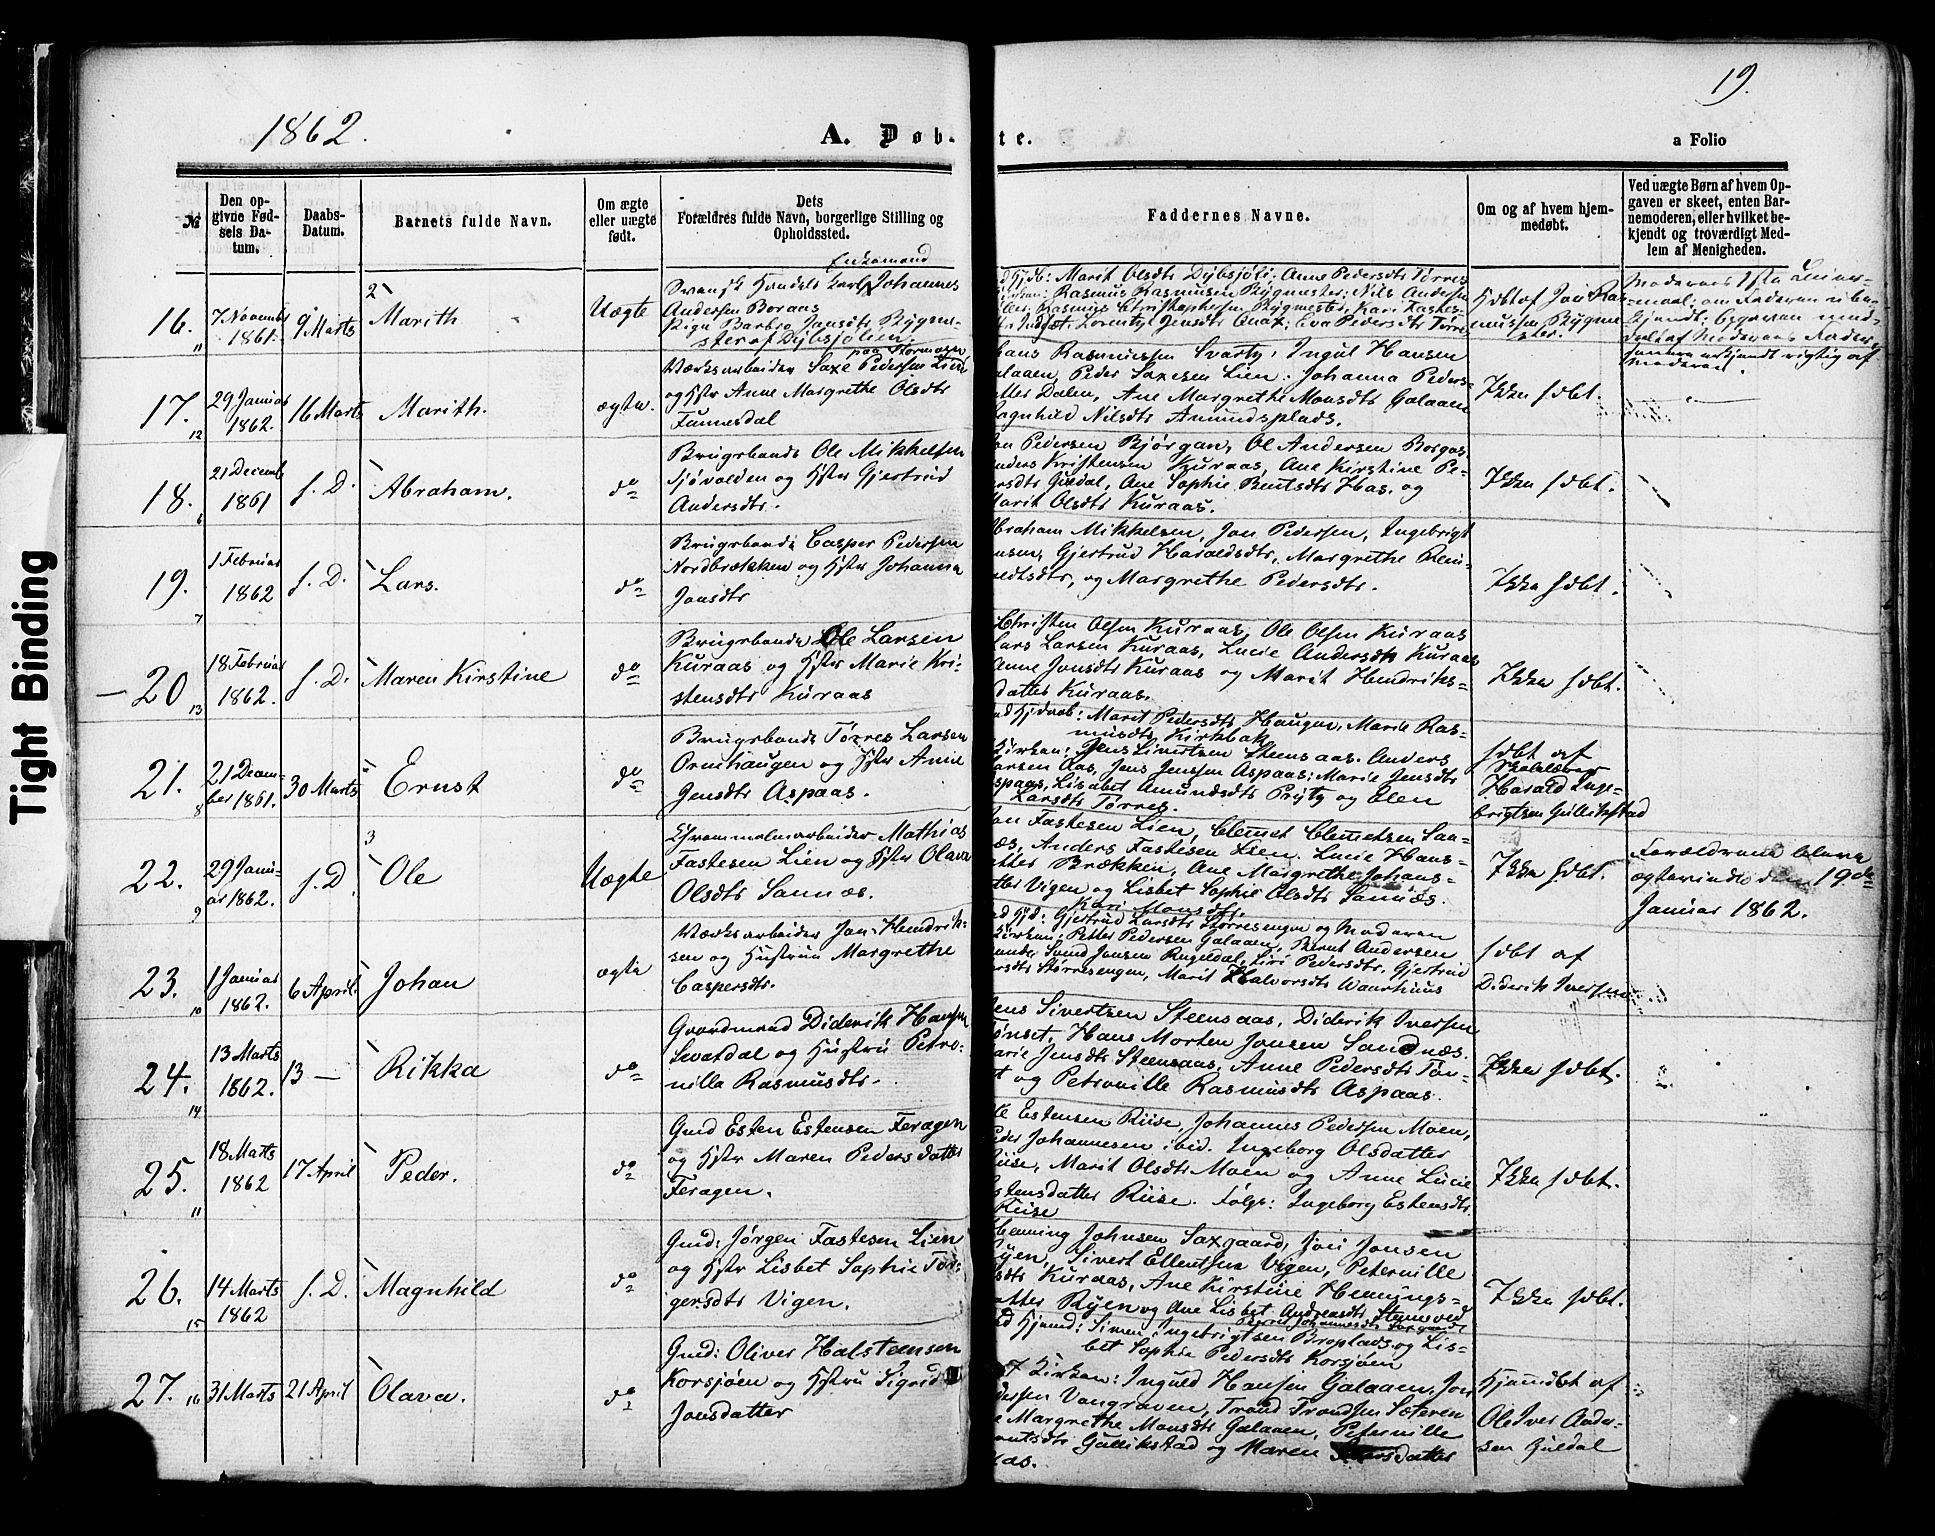 1862.
19.
A. Døb-
te.
a Folio
№
Den op-
givne Fød-
sels Da-
tum.
Daabs-
Datum.
Barnets fulde Navn.
Om ægte
eller uægte
født.
Dets
Forældres fulde Navn, borgerlige Stilling og
Opholdssted.
Faddernes Navne.
Om og af hvem hjem-
medøbt.
Ved uægte Børn af hvem Op-
gaven er skeet, enten Bar-
nemoderen, eller hvilket be-
kjendt og troværdigt Med-
lem af Menigheden.
16.
11
7 Novembr
1861.
9 Marts
2
Marith
Uægte
Enkemand
Svensk Handels Karl Johannes
Andersen Boraas
Pige Barbro Jonsdtr Bygme-
ster af Dybsjølien.
Marit Olsdtr Dybsjøli, Anne Pedersdtr Torres
Rasmus Rasmusen Bygmester, Nils Andersen
Rasmus Christophersen Bygmester, Kari Fastes-
Lorentz Jensdtr Anax, Eva Pedersdtr Torre
Hdbt af Jon Ras-
mussen Bygme-
ster.
17.
12
29 Januar
1862.
16 Marts
Marith.
ægte.
paa Stormoen
Værksarbeider Saxe Pedersen Lien
og Hstr Anne Margrethe Olsdtr
Funnesdal
Hans Rasmussen Svarty, Ingul Hansen
Galaaen, Peder Saxesen Lien, Johanna Peders-
datter Dalen, Ane Margrethe Monsdtr Galaaen
Ragnhild Nilsdtr Amundsplads.
Ikke hdbt.
18.
6
21 Decemb
1861
s. D.
Abraham.
do
Brugsbonde Ole Mikkelsen
Sjøvolden og Hstr Gjertrud
Andersdtr.
Pedersen Bjørgan, Ol Andersen Borgos
Anders Kristensen Kuraas, Ane Kirstine Pe-
dersdtr Guldal, Ane Sophie Bentsdtr Aas, og
Marit Olsdtr Kuraas.
Ikke hdbt.
19.
7
1 Februar
1862
s. D.
Lars.
do
Brugsbonde Casper Pedersen
Nordbrækken og Hstr Johanna
Jonsdtr
Abraham Mikkelsen, Jon Pedersen, Ingebrigt
Jensen, Gjertrud Haraldsdtr, Margrethe Ben-
edtsdtr, og Margrethe Pedersdtr.
Ikke hdbt.
20
13
18 Februar
1862.
s. D.
Maren Kirstine
do
Brugsbonde Ole Larsen
Kuraas og Hstr Marie Kri-
stensdtr Kuraas
Christen Olsen Kuraas, Ole Olsen Kuraas
Lars Larsen Kuraas, Lucie Andersdtr Kuraas
Anne Jonsdtr Kuraas og Marit Hendriks-
datter Kuraas.
Ikke hdbt.
21.
8
21 Decem-
ber 1861.
30 Marts
Ernst
do
Brugsbonde Tørres Larsen
Ormhaugen og Hstr Anne
Jensdtr Aspaas.
Marit Pedersdtr Haugen, Marie Ras-
musdtr Kirkbak
Kirken: Jens Sivertsen Steensaas, Anders
Larsen Aas, Jens Jensen Aspaas, Marie Jensdtr
Aspaas, Lisabet Amundsdtr Prytz og Elen
Larsdtr Tørres.
hdbt af
Skolelærer
Harald Inge-
brigtsen Gullikstad
22.
9
29 Janu-
ar 1862.
s. D.
3
Ole
Uægte
Grammelmarbeider Mathias
Fastesen Lien og Hstr Olava
Olsdtr Sannæs.
Jon Fastesen Lien, Clemet Clemetsen San-
næs, Anders Fastesen Lien, Lucie Hans-
datter Brækken, Ane Margrethe Johans-
datter Vigen og Lisbet Sophie Olsdtr Sannæs.
Kari Monsdtr.
Ikke hdbt.
Forældrene bleve
ægteviede den 19de
Januar 1862.
23.
10
1 Januar
1862.
6 April.
Johan
ægte
Værksarbeider Jon Hendrik-
sen og Hustru Margrethe
Caspersdtr.
Gjertrud Larsdtr Størresengen og Moderen
Kirken: Petter Pedersen Galaaen, Bernt Andersen
Svend Jonsen Rugeldal, Siri Pedersdtr, Gjertrud
Størresengen, Marit Halvorsdtr Waarhuus
hdbt af
Diderik Iversen
24.
14
13 Marts
1862.
13 —
Rikka
do
Gaardmand Diderik Hansen
Svardal og Hustru Petro-
nille Rasmusdtr.
Jens Sivertsen Steensaas, Diderik Iversen
Tønset, Hans Morten Jonsen Sandnæs.
Marie Jensdtr Steensaas, Anne Pedersdtr Tøn-
set og Petronille Rasmusdtr Aspaas.
Ikke hdbt.
25.
11
18 Marts
1862
17 April
Peder.
do
Gmd Esten Estensen Feragen
og Hstr Maren Pedersdatter
Feragen.
Ole Estensen Riise, Johannes Pedersen Moen,
Peder Johannesen ibid. Ingeborg Olsdatter
Riise, Marit Olsdtr Moen og Anne Lucie
Estensdatter Riise. Følge: Ingeborg Estensdtr
Riise
Ikke hdbt.
26.
15
14 Marts
1862
s. D.
Magnhild
do
Gmd: Jørgen Fastesen Lien
og Hstr Lisbet Sophie Tor-
gersdtr Vigen.
Henning Johnsen Saxgaard, Jon Jonsen
Ryen, Sivert Ellentsen Vigen, Peternille
Kuraas, Ane Kirstine Hennings-
datter Ryen og Ane Lisbet Andreasdtr Stenneved
Ikke hdbt.
27.
16
31 Marts
21 April
Olava.
do
Gmd: Oliver Halstensen
Korsjøen og Hstru Sigrid
Jonsdatter
Simen Ingebrigtsen Broplads og Lis-
bet Sophie Pedersdtr Korsjøen
Kirken: Ingvald Hansen Galaaen, Jon
Pedersen Vongraven, Trond Trondsen Sæteren
Margrethe Monsdtr Galaaen, Peternille
Gullikstad og Maren Larsdatter
Aas.
Hjemdbt af
Ole Iver Ander-
sen Guldal
Tight Binding